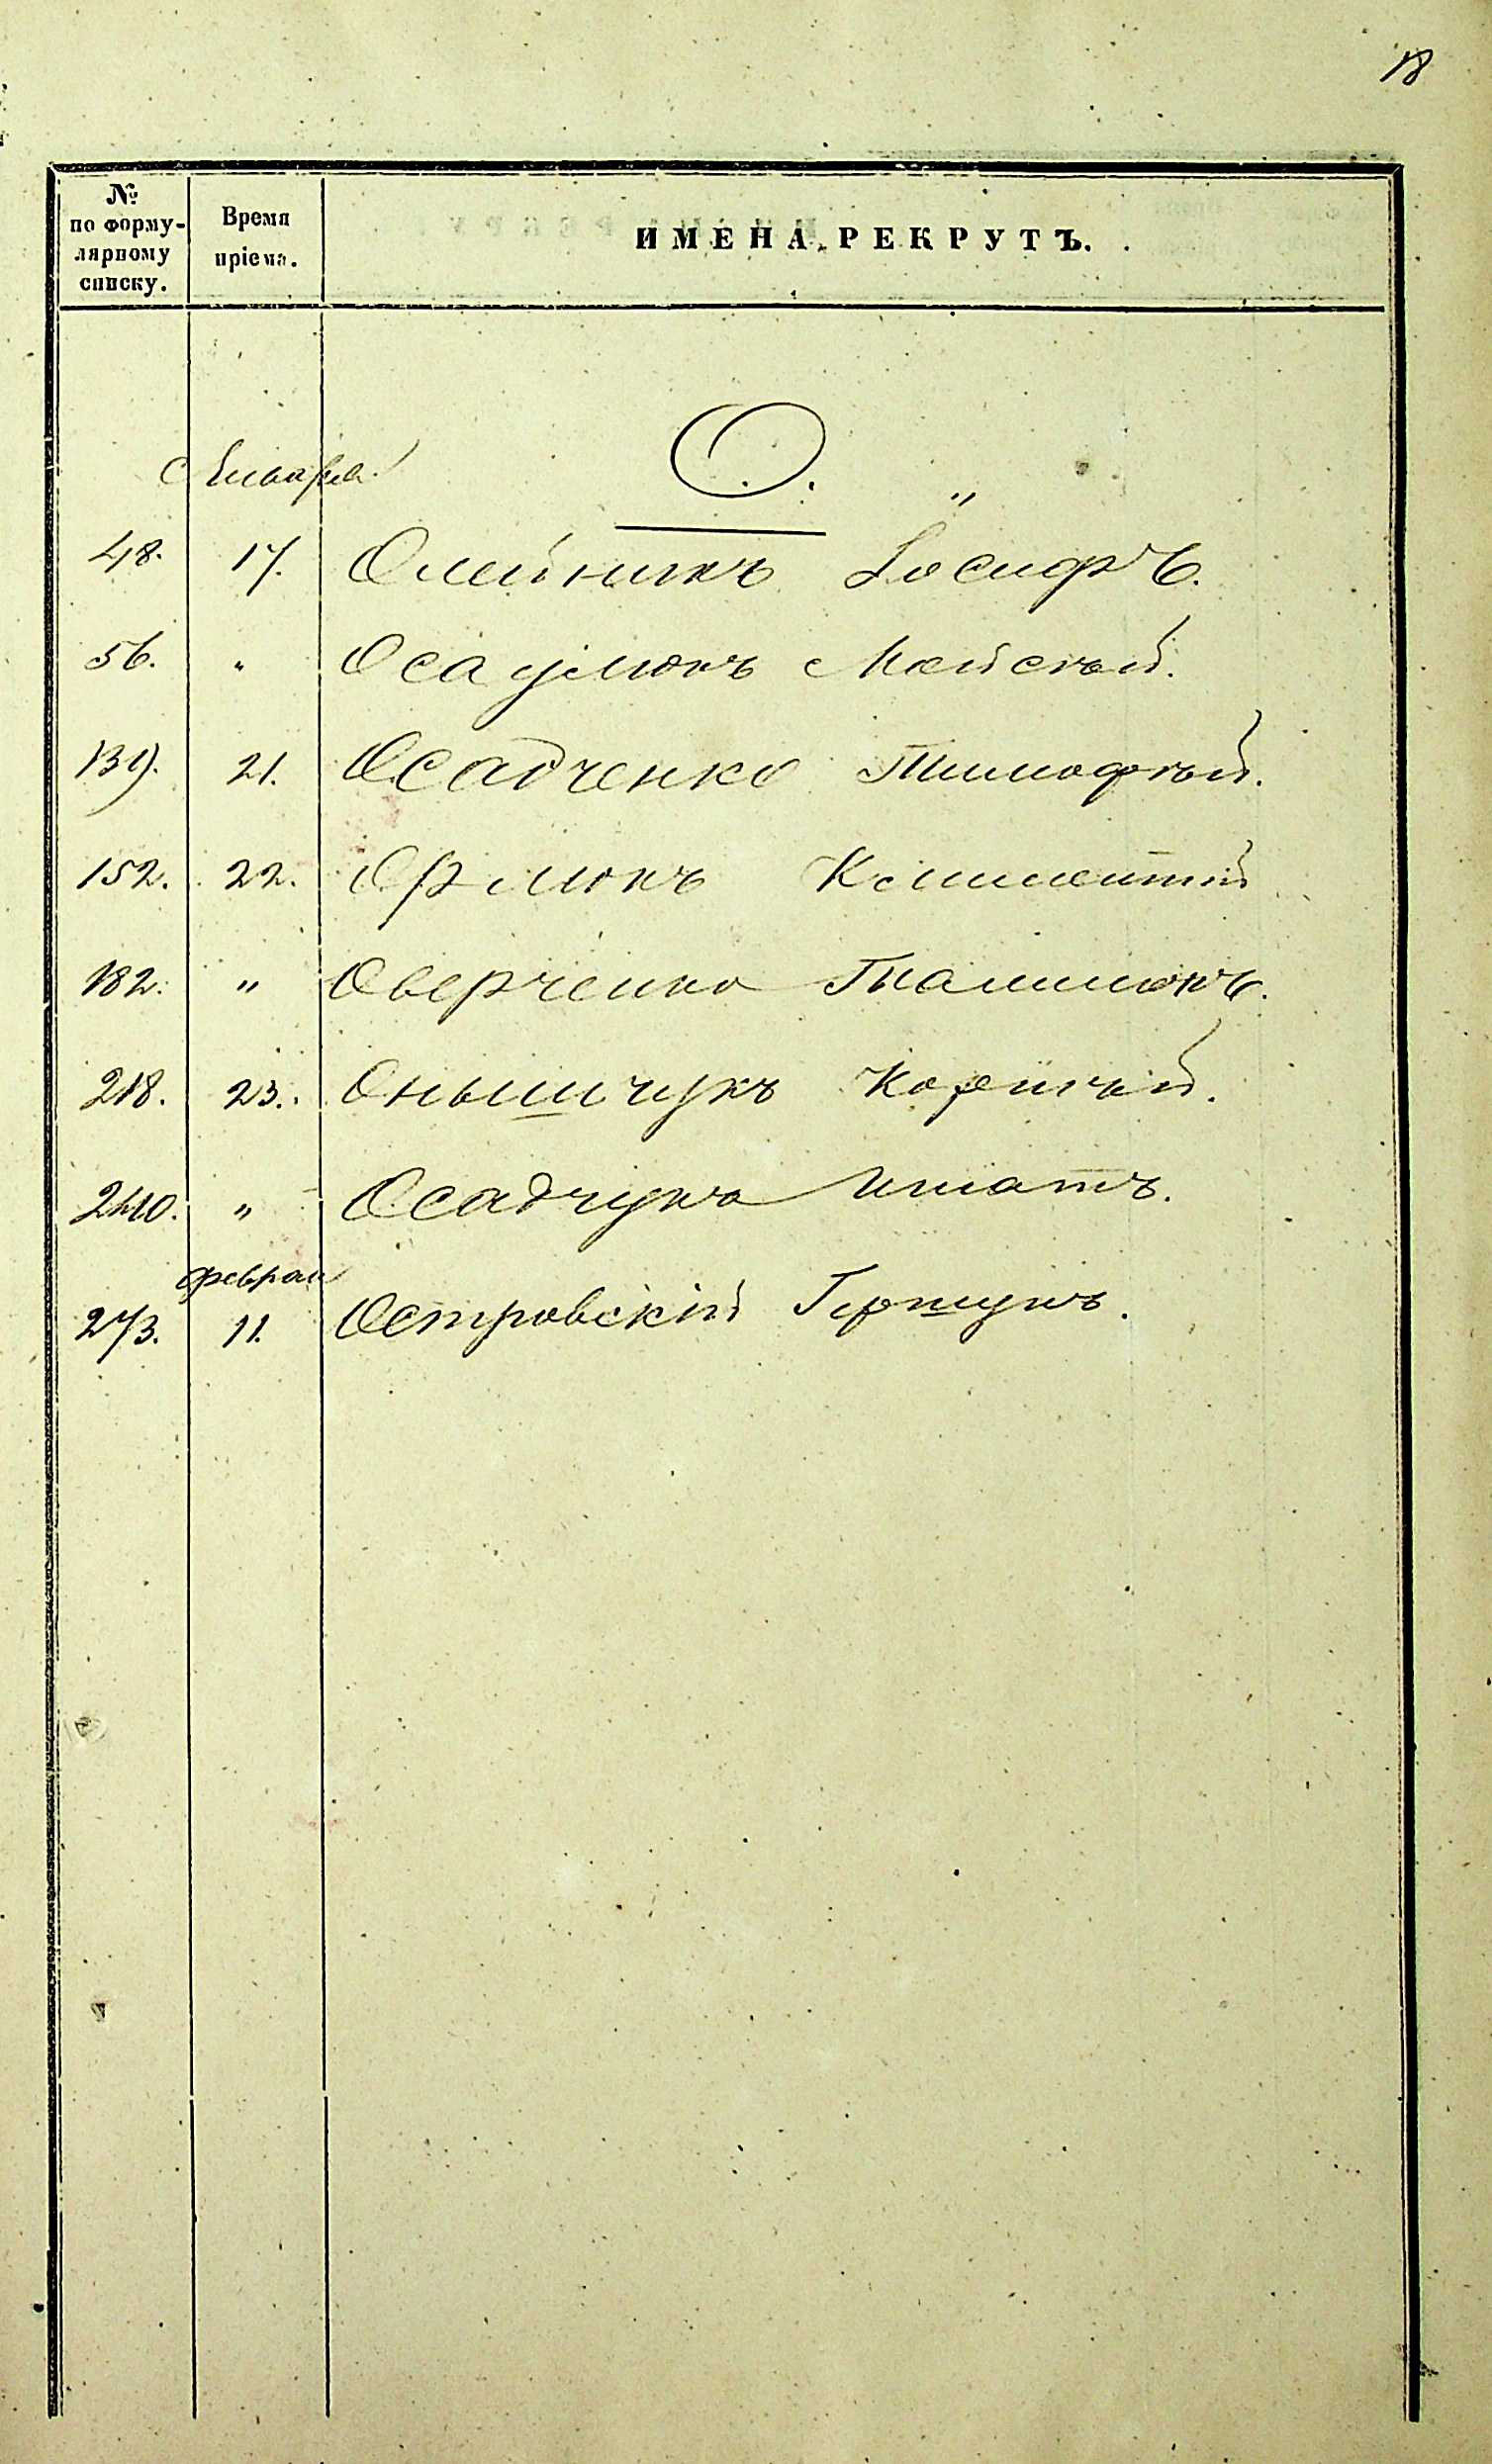 18
№ по формулярному списку. Время пріема. ИМЕНА РЕКРУТЪ.
О.
Января
48. 17. Олейникъ Іосифъ.
56. " Осаулюкъ Моисѣй.
139. 21. Осадченко Тимофѣй.
152. 22. Орлюкъ Климентій
182. " Оверченко
218. 23. Онышчукъ Корнѣй.
240. " Осадчукъ Игнатъ.
Феврал
273. 11. Островскій